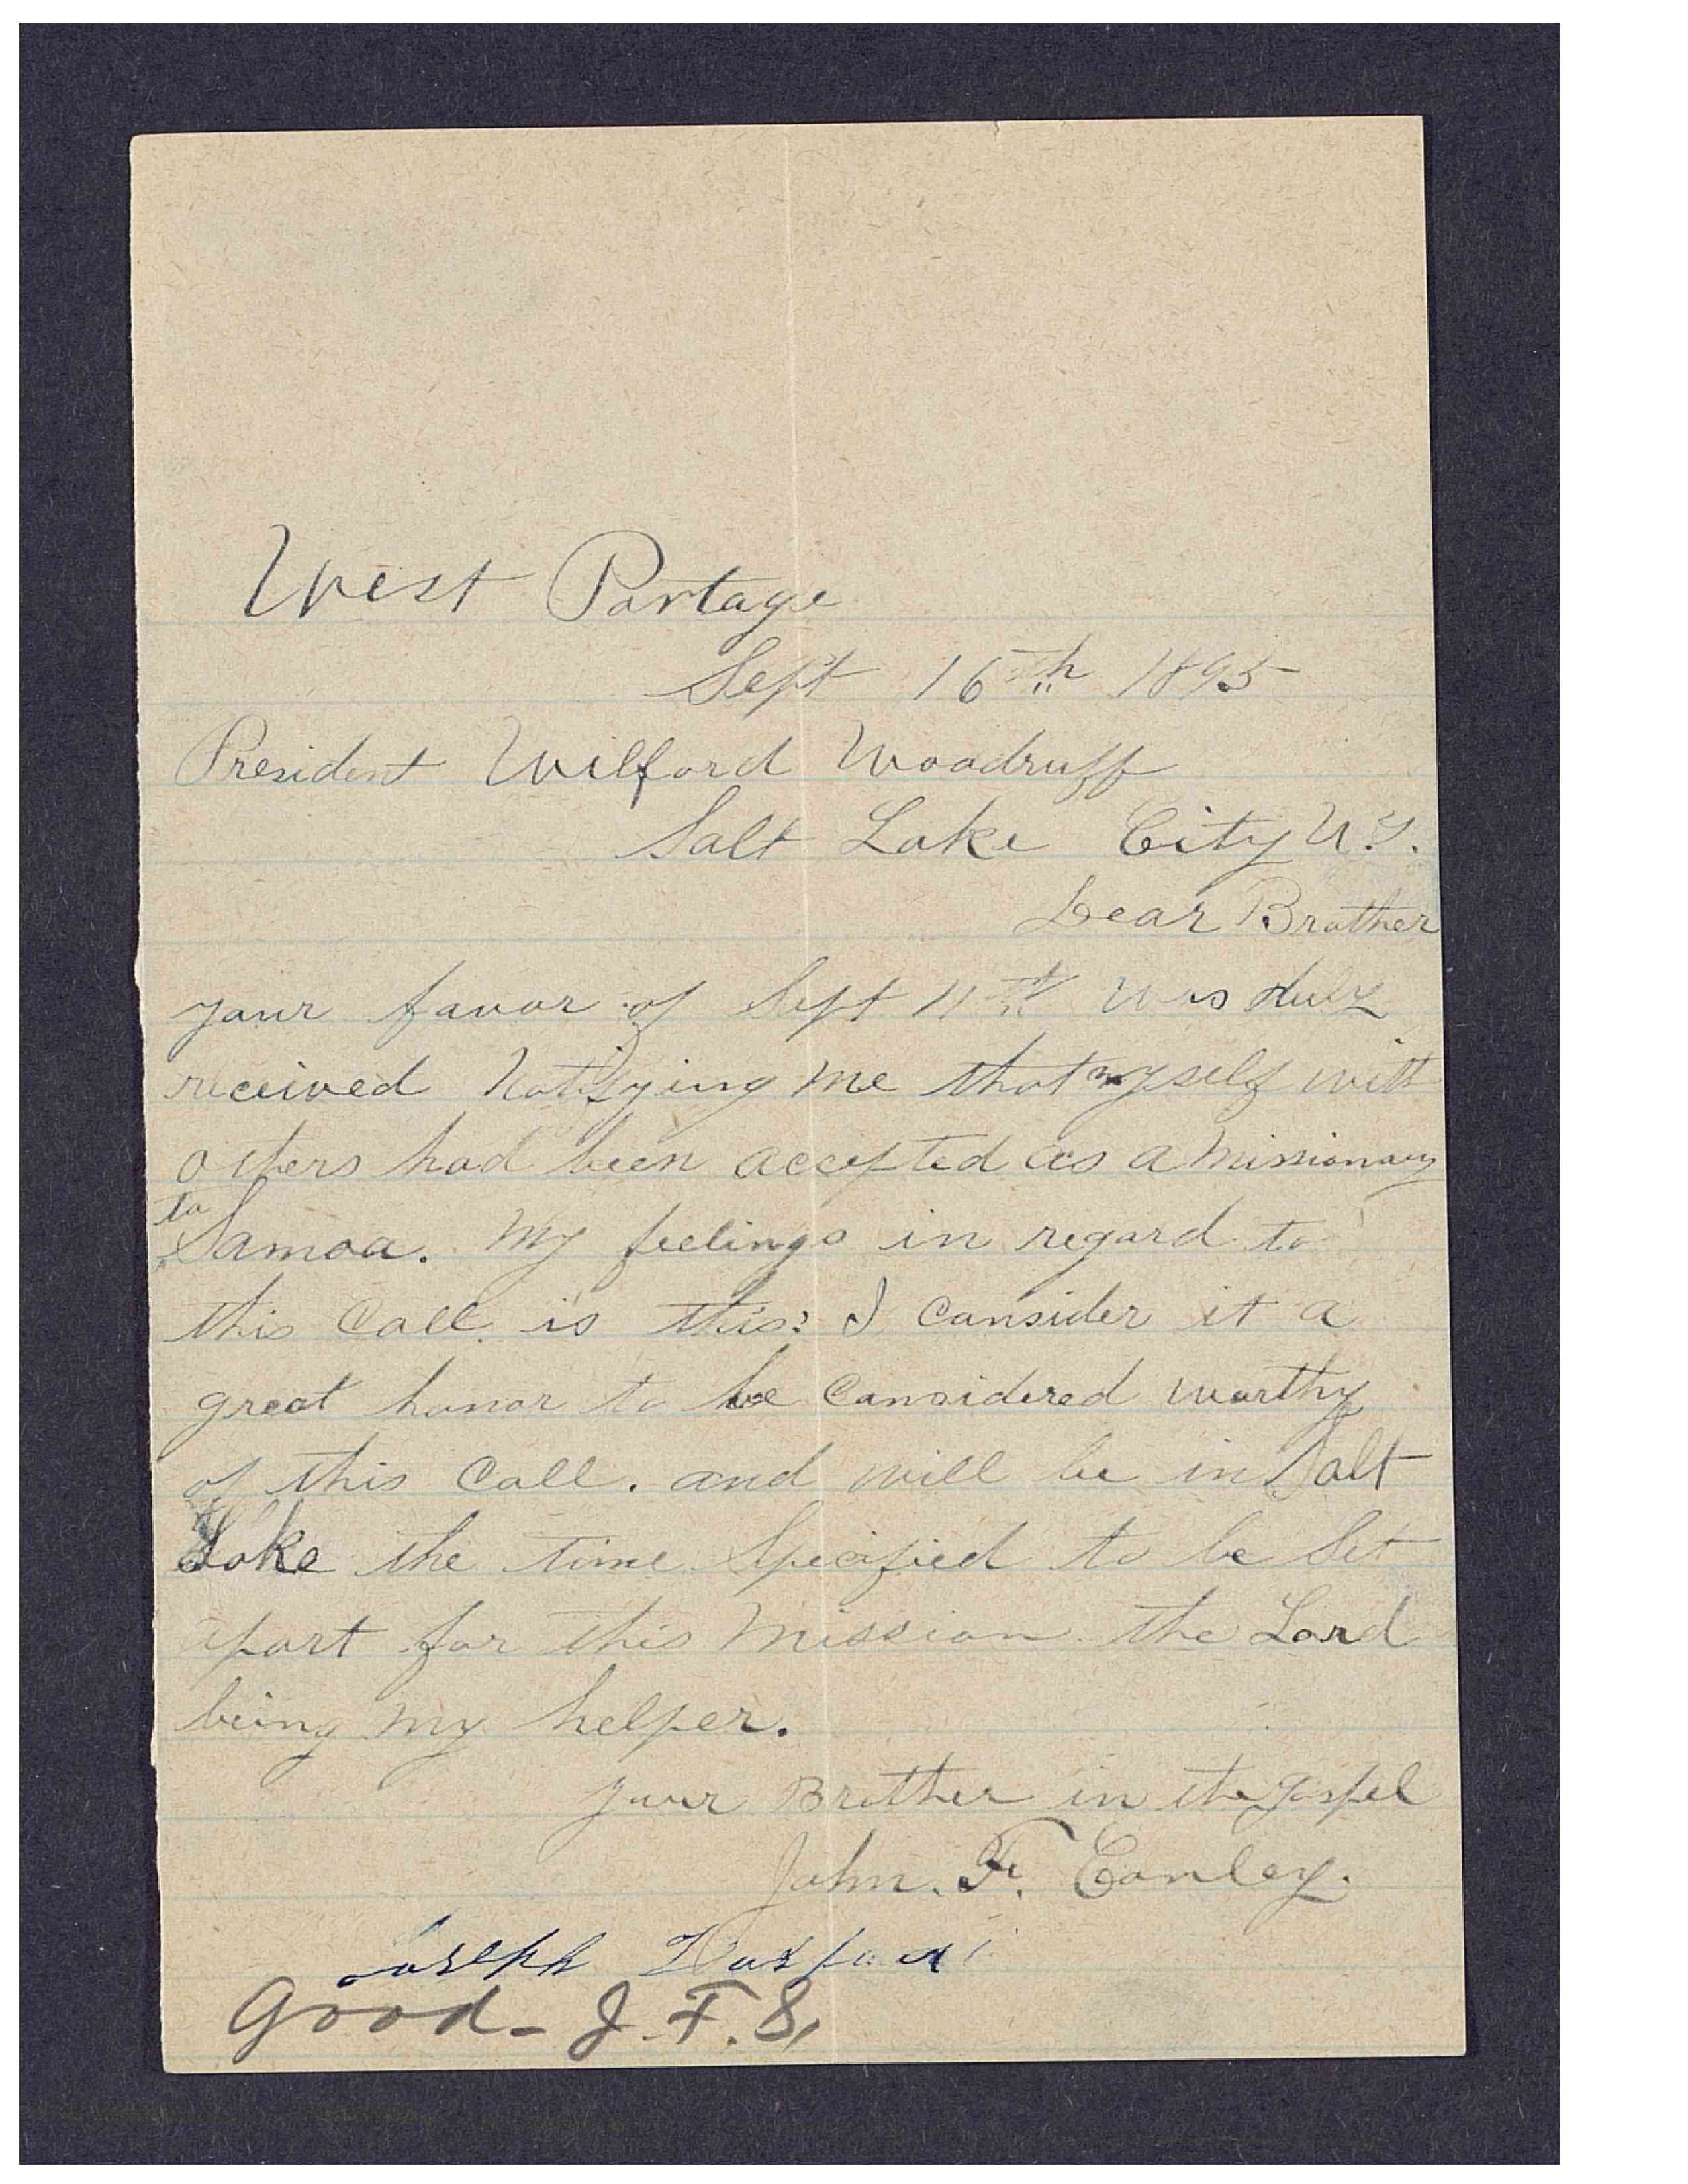 West Portage
Sept 16th 1895
President Wilford Woodruff
Salt Lake City U.T.
Dear Brother
your favor of Sept 11th was duly
received Notifying me that myself with
others had been accepted as a missionary
to
Samoa. My feelings in regard to
this Call is this: I Consider it a
great honor to be Considered worthy
of this Call. and will be in Salt
Lake the time Specified to be Set
apart for this Mission the Lord
being my helper.
your Brother in the gospel
John. F. Conley.
Joseph
Good - J. F. S.